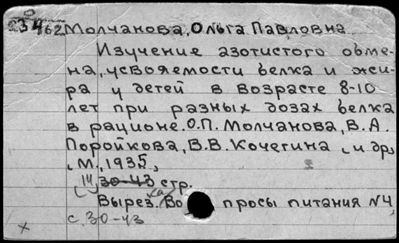 34462 Молчанова, Ольга Павловна
Изучение азотистого обме-
на, усвояемости белка и жи-
ра у детей в возрасте 8-10
лет при разных дозах белка
в рационе. О.П. Молчанова, В.А.
Поройкова, В.В. Кочегина [и др]
М, 1935,
30-43 стр.
Вырез. Вопросы питания №4,
с. 30-43
х